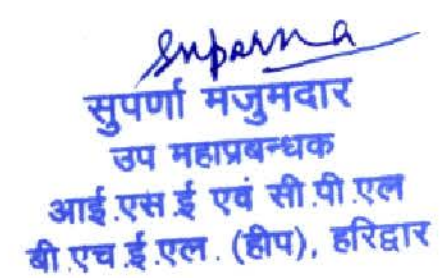 Suparna
सुपर्णा मजुमदार
उप महाप्रबन्धक
आई.एस.ई एवं सी.पी.एल
बी.एच.ई.एल. (हीप), हरिद्वार